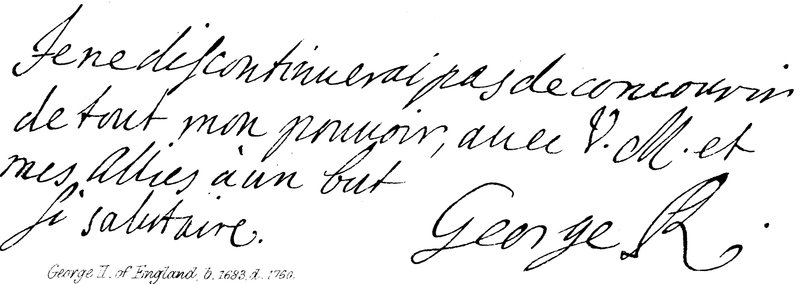 Je ne discontinuerai pas de concourir
de tout mon pouvoir, avec V. M. et
mes Allies à un but
si salutaire.
George R.
George II. of England, b. 1683, d. 1760.